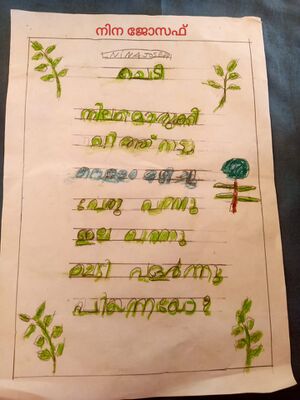 നിന ജോസഫ്
NINA JOSEPH
ചെടി
നിലമൊരുക്കി
വിത്ത് നട്ടു
വെള്ളം ഒഴിച്ചു
വേരു വന്നു
ഇല വന്നു
ചെടി വളർന്നു
പിന്നെയോ ?